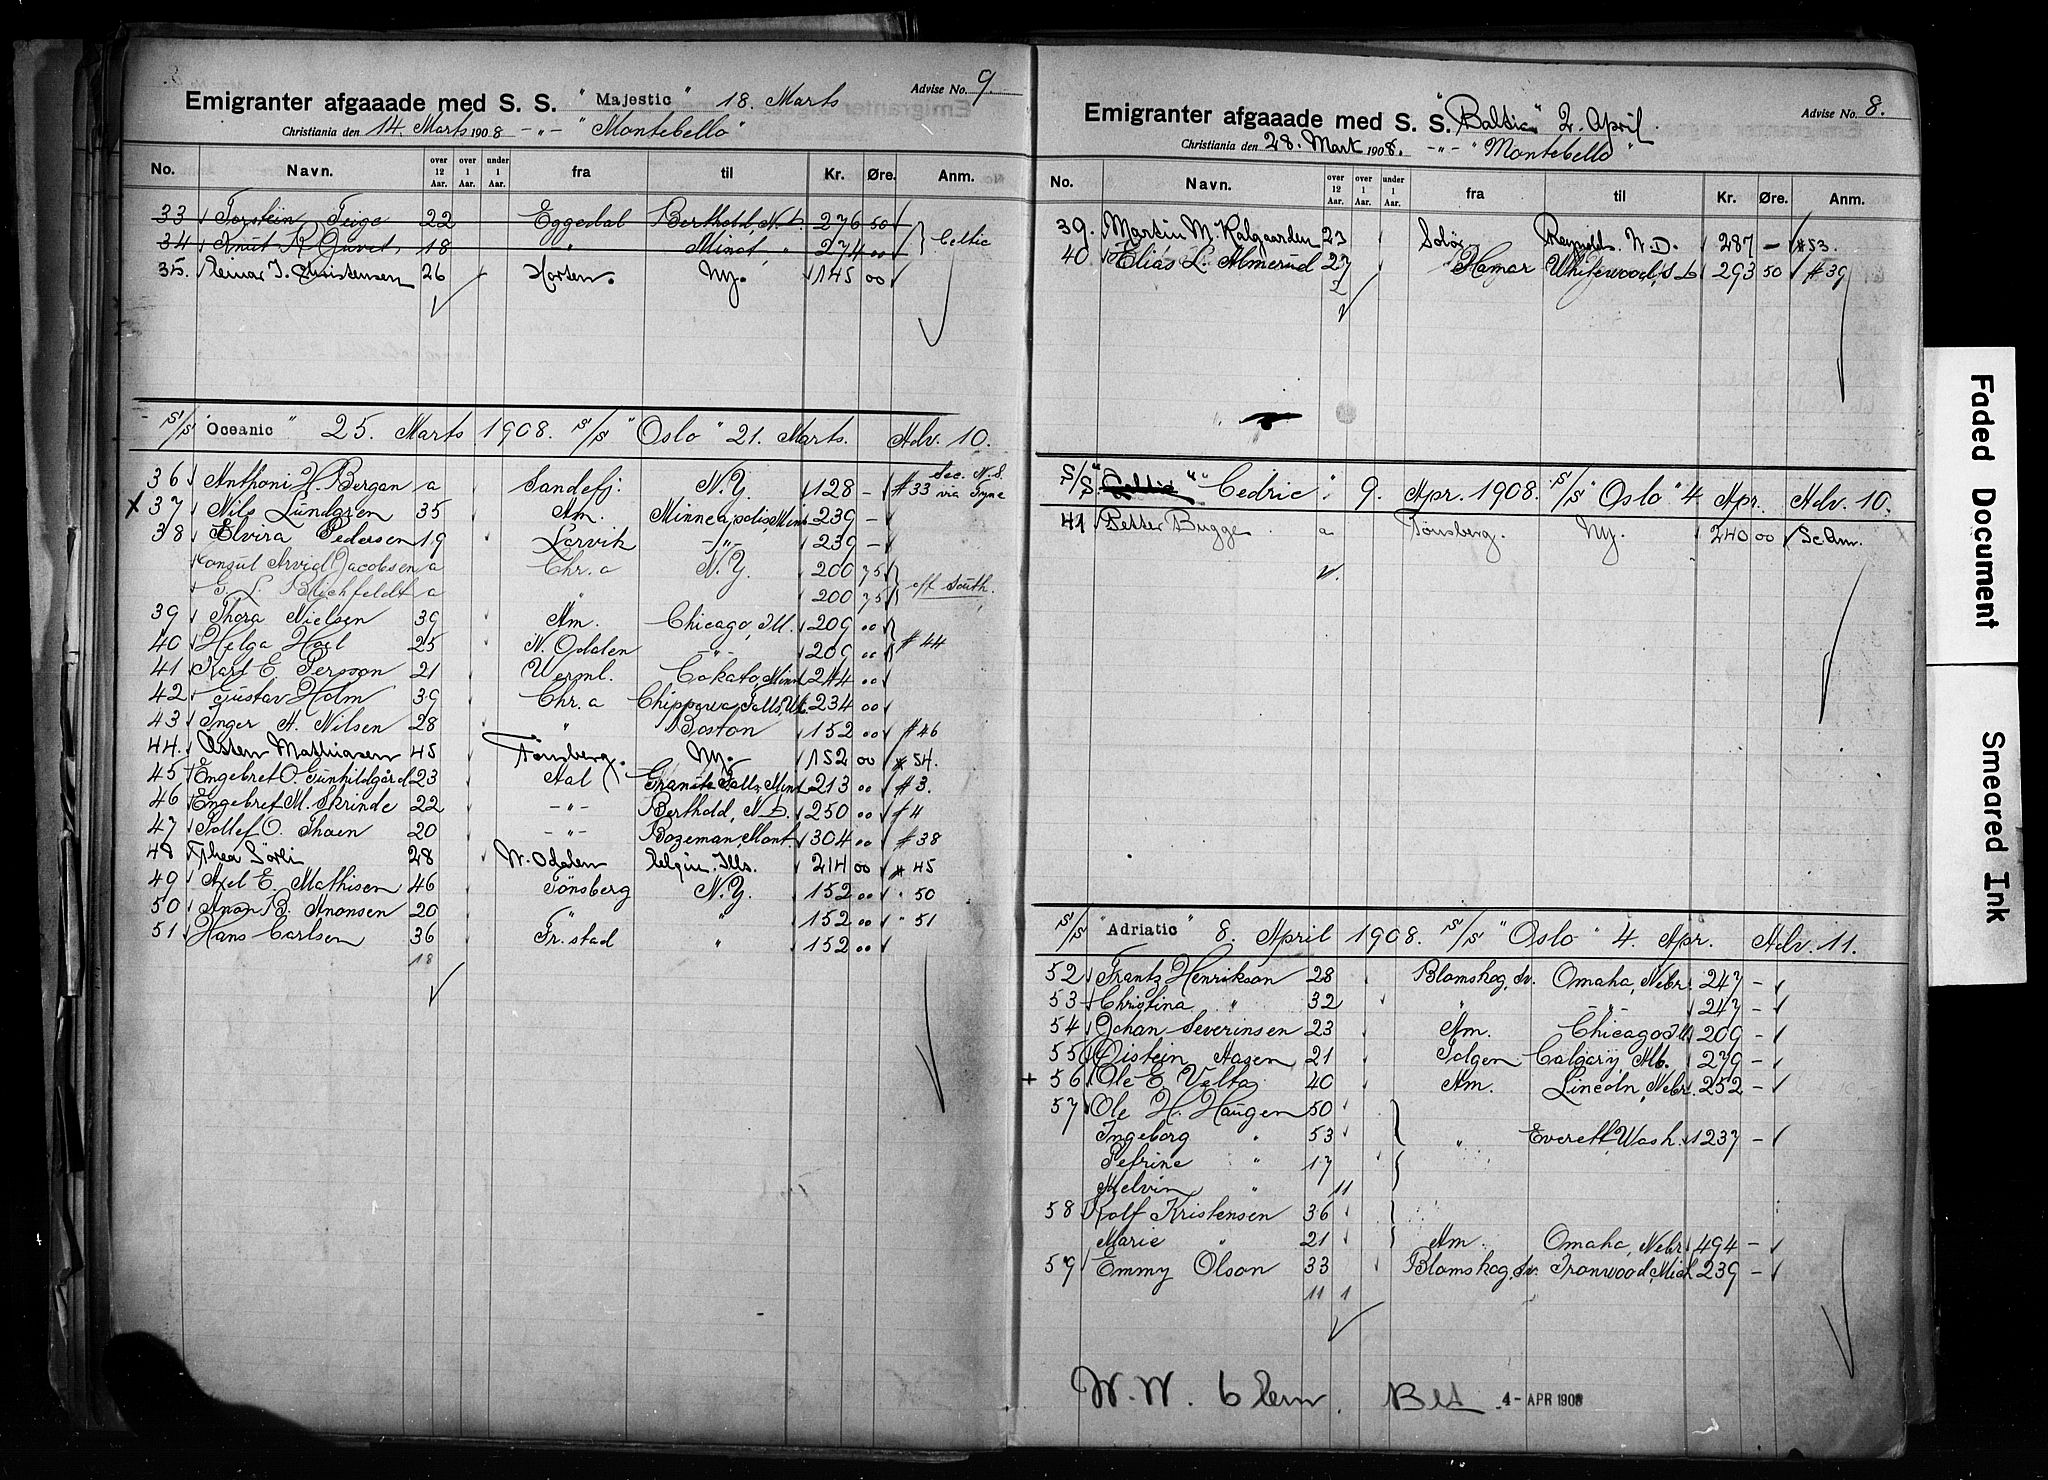 Advise No. 9.
Emigranter afgaaade med S. S. "Majestic" 18. Marts
Christiania den 14. Marts 1908 -"- "Montebello"
No. Navn. over 12 Aar. over 1 Aar. under 1 Aar. fra til Kr. Øre. Anm.
33 Torstein Teige 22 Eggedal Berthold, N.D. 276 50
34 Knut K. 18 " Minot, " 274 00 Celtic
35. Einar J. Christensen 26 Horten. Ny. 145 00
S/S "Oceanic" 25. Marts 1908. S/S "Oslo" 21. Marts. Adv. 10.
36 Anthoni H. Bergan a Sandefj. N.Y. 128 - #33 Sec. N.S. via Tyne
X 37 Nils Lundgren 35 Am. Minneapolis, Minn 239 -
38 Elvira Pedersen 19 Larvik -"- 239 -
Consul Arvid Jacobsen a Chr.a N.Y. 200 75
G. L. Blichfeldt a " 200 75 off South.
39 Thora Nielsen 39 Am. Chicago, Ill. 209 00
40 Helga Hoel 25 N. Odalen -"- 209 00 #44
41 Karl E. Persson 21 Werml. Cokato, Minn 244 00
42 Gustav Holm 39 Chr.a Chippewa Falls, Wis. 234 00
43 Inger A. Nilsen 28 " Boston 152 00 #46
44. Osten Mathiasen 45 Tönsberg. Ny. 152 00 #54.
45 Engebret O. Gunhildgård 23 Aal Granite Falls, Minn 213 00 #3.
46 Engebret M. Skrinde 22 -"- Berthold, N.D. 250 00 #4
47 Tollef O. Thoen 20 -"- Bozeman, Mont. 304 00 #38
48 Thea Sörli 28 N. Odalen Elgin, Ills. 214 00 #45
49 Axel E. Mathisen 46 Tönsberg N.Y. 152 00 " 50
50 Anon B. Anonsen 20 " " 152 00 " 51
51 Hans Carlsen 36 Fr.stad " 152 00
18
Advise No. 8.
Emigranter afgaaade med S. S. "Baltic" 2. April
Christiania den 28. Mart 1908. -"- "Montebello"
No. Navn. over 12 Aar. over 1 Aar. under 1 Aar. fra til Kr. Øre. Anm.
39. Martin M. Kalgaarden 23 Solör. Reynolds. N.D. 287 - #53.
40. Elias L. Almerud 27 Hamar Whitewood, S.D. 293 50 #39
2
S/S "Cedric" 9. Apr. 1908. S/S "Oslo" 4 Apr. Adv. 10.
41 Petter Bugge a Tönsberg. Ny. 240 00 Sc. Am.
S/S "Adriatic" 8. April 1908. S/S "Oslo" 4. Apr. Adv. 11.
52 Frantz Henrikson 28 Blomskog, Sv. Omaha, Nebr. 247 -
53 Christina " 32 " -"- 247 -
54 Johan Severinsen 23 Am. Chicago Ill 209 -
55 Oistein Aasen 21 Tolgen Calgary, Alb. 279 -
+ 56 Ole E. Velta 40 Am. Lincoln, Nebr. 252 -
57 Ole H. Haugen 50
Ingeborg " 53 " Everett, Wash. 1237 -
Petrine " 17
Melvin " 11
58 Rolf Kristensen 36
Marie " 21 Am. Omaha, Nebr 494 -
59 Emmy Olson 33 Blomskog, Sv. Ironwood, Mich 239 -
11 1
W. W. 4-APR 1908
Faded Document
Smeared Ink